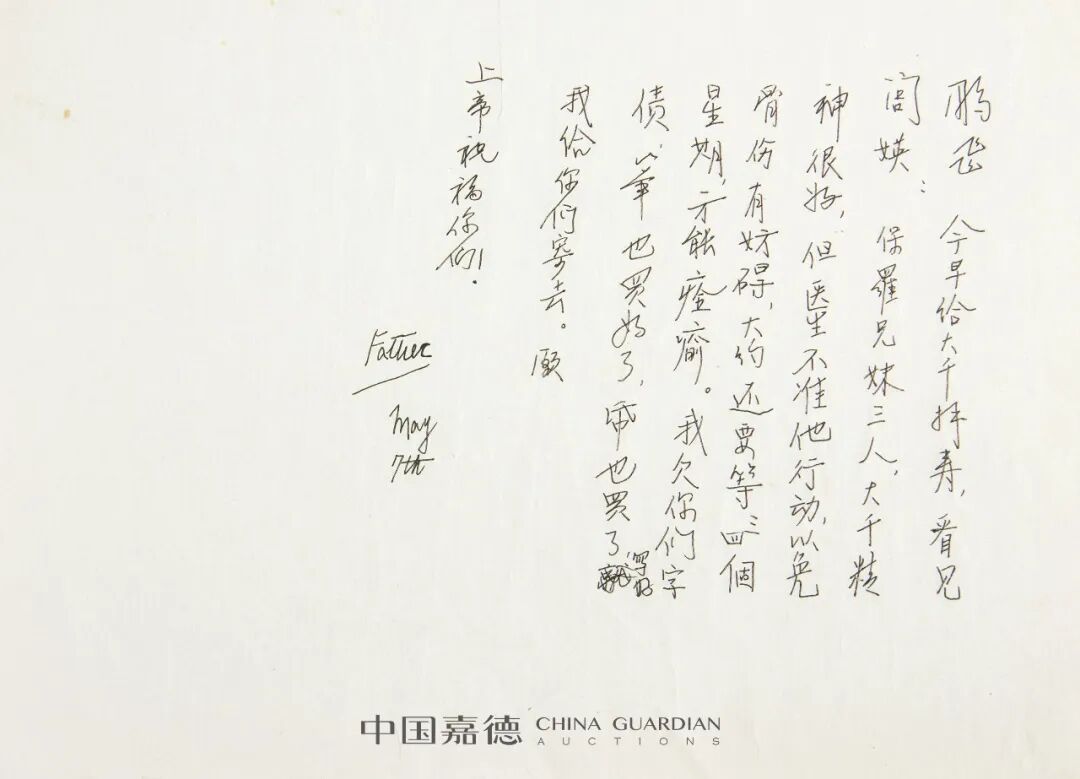 鹏飞 今早给大千拜寿，看见
闾媖： 保羅兄妹三人，大千精
神很好，但医生不准他行动，以免
骨伤有妨碍，大约还要等三四個
星期，才能痊瘉。我欠你们字
债，筆也買好了，帋也買了，写好
我给你们寄去。願
上帝祝福你们！
Father
May
7th
中国嘉德 CHINA GUARDIAN
AUCTIONS